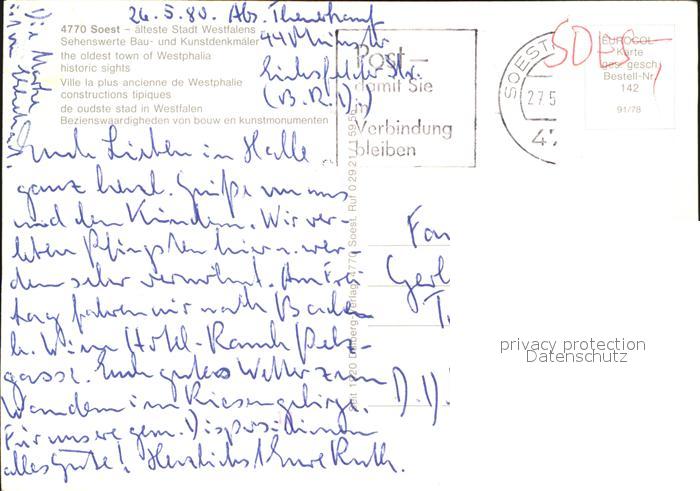 26.5.80. Abs. Themerkamp
44 Münster
(B.R.D.)
4770 Soest – älteste Stadt Westfalens
Sehenswerte Bau- und Kunstdenkmäler
the oldest town of Westphalia
historic sights
Ville la plus ancienne de Westphalie
constructions tipiques
de oudste stad in Westfalen
Bezienswaardigheden von bouw en kunstmonumenten
Post–
damit Sie
in
Verbindung
bleiben
SOEST
27.5
47
SDES
EUROCOL-
Karte
ges. gesch.
Bestell-Nr.
142
91/78
Euch Lieben in Halle
ganz herzl. Grüße von uns
und den Kindern. Wir ver-
leben Pfingsten hier u. wer-
den sehr verwöhnt. Am Frei-
tag fahren wir nach Baden
b. Wien Hotel-Rauch Pelz-
gasse. Euch gutes Wetter zum
Wandern im Riesengebirge.
Für unsere gem. Dispositionen
alles Gute! Herzlichst Eure Ruth.
Fam
Gerl
D.D.
privacy protection
Datenschutz